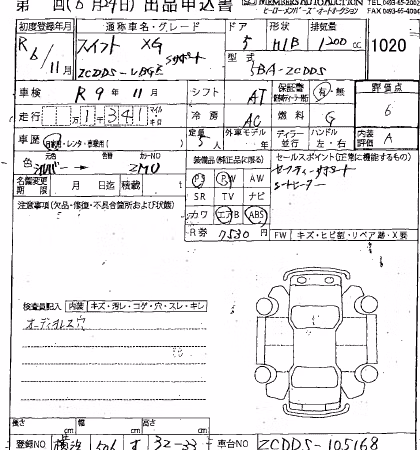 第 回(6月24日) 出品申込書
MEMBERS AUTO AUCTION
ヒーローメンバーズ・オートオークション
TEL 0493-65-2002
FAX 0493-65-4006
初度登録年月 通称車名・グレード ドア 形状 排気量
R 6/11月 スイフト XG 5 H/B 1200 cc 1020
型式
ZCDDS 5BA-ZCDDS
車検 R 9年 11月 シフト AT 保証書 有・無 評価点
走行 1 341 マイル キロ 冷房 AC 燃料 G 6
車歴 自家用・レンタ・営業用( ) 定員 5人 外車モデル 年 ディーラー 並行 ハンドル 左・右 内装評価 A
色 元色 シルバー 色替 カラーNO ZM0
装備品(純正品に限る) セールスポイント(正常に機能するもの)
名義変更期限 月 日迄 積載 t
PS PW AW セーフティーサポート
SR TV ナビ シートヒーター
注意事項(欠品・修復・不具合箇所および状態)
カワ エアB ABS
R券 7530円 FW キズ・ヒビ割・リペア跡・X要
検査員記入 内装 キズ・汚レ・コゲ・穴・スレ・キレ
オーディオレス穴
長さ 幅 高さ
cm cm cm
登録NO 横浜 506 す 32-33 車台NO ZCDDS-105168